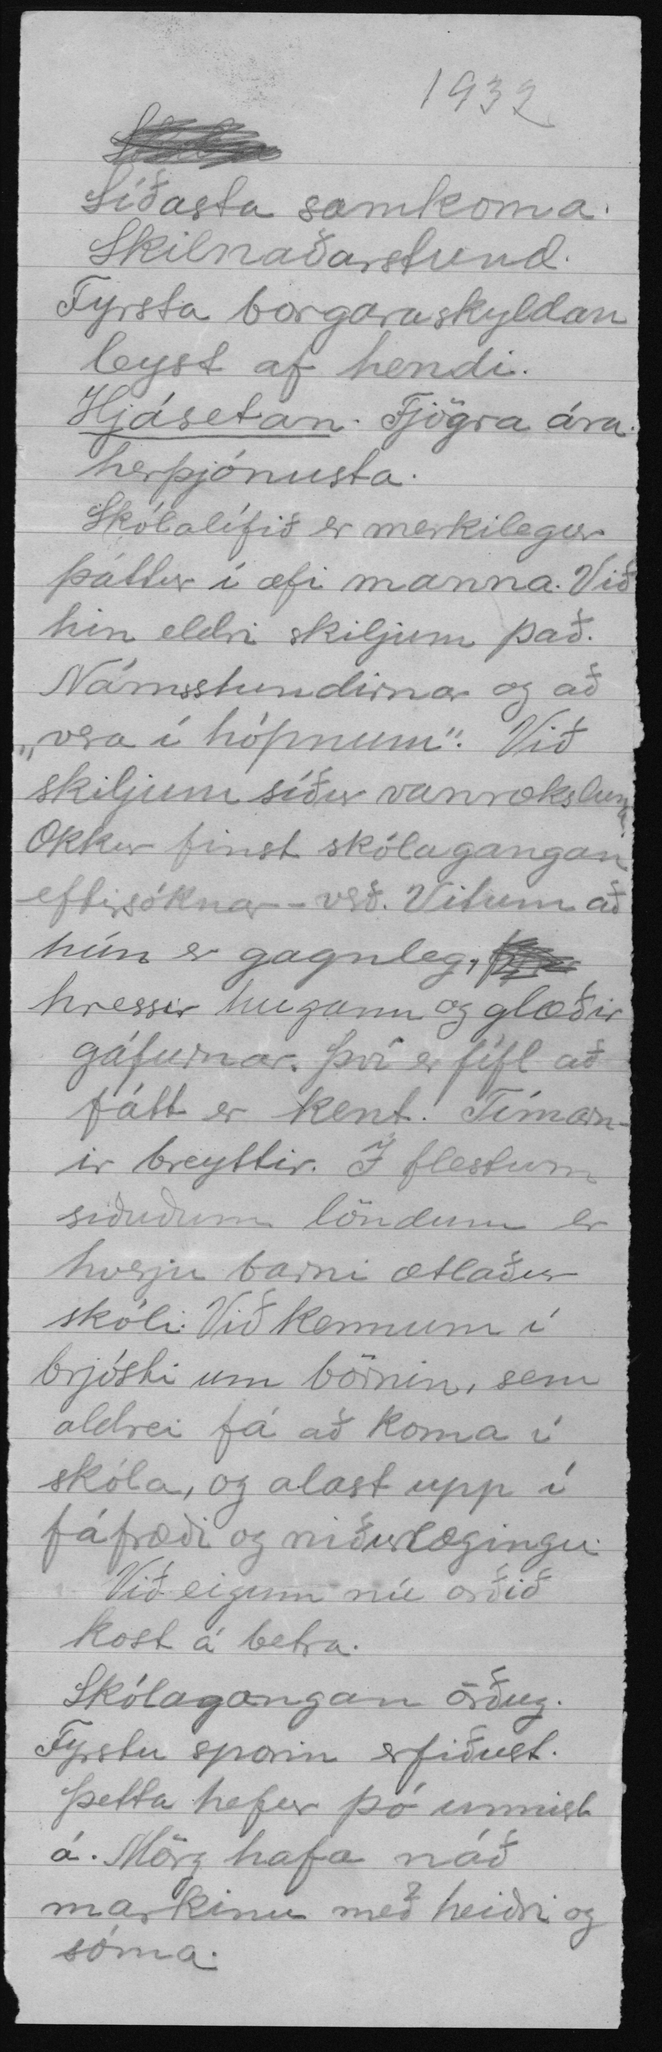 1932
Síðasta samkoma.
Skilnaðarstund.
Fyrsta borgaraskyldan
leyst af hendi.
Hjásetan. Fjögra ára
herþjónusta.
Skólalífið er merkilegur
þáttur í æfi manna. Við
hin eldri skiljum það.
Námsstundirnar og að
„vera í hópnum". Við
skiljum síður vanræksluna.
Okkur finst skólagangan
eftirsóknar-verð. Vitum að
hún er gagnleg,
hressir hugann og glæðir
gáfurnar. Því er fífl að
fátt er kent. Tímarn-
ir breyttir. Í flestum
siðuðum löndum er
hverju barni ætlaður
skóli. Við kennum í
brjósti um börnin, sem
aldrei fá að koma í
skóla, og alast upp í
fáfræði og niðurlægingu.
Við eigum nú orðið
kost á betra.
Skólagangan örðug.
Fyrstu sporin erfiðust.
Þetta hefur þó unnist
á. Mörg hafa náð
markinu með heiðri og
sóma.